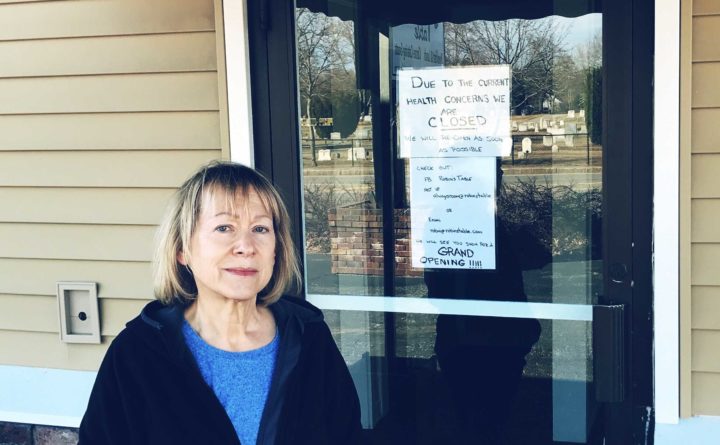 Table
DUE TO THE CURRENT
HEALTH CONCERNS WE
ARE
CLOSED
WE WILL RE-OPEN AS SOON
AS POSSIBLE
CHECK OUT:
FB ROBIN'S TABLE
OR
EMAIL
WE WILL SEE YOU SOON FOR A
GRAND
OPENING !!!!!